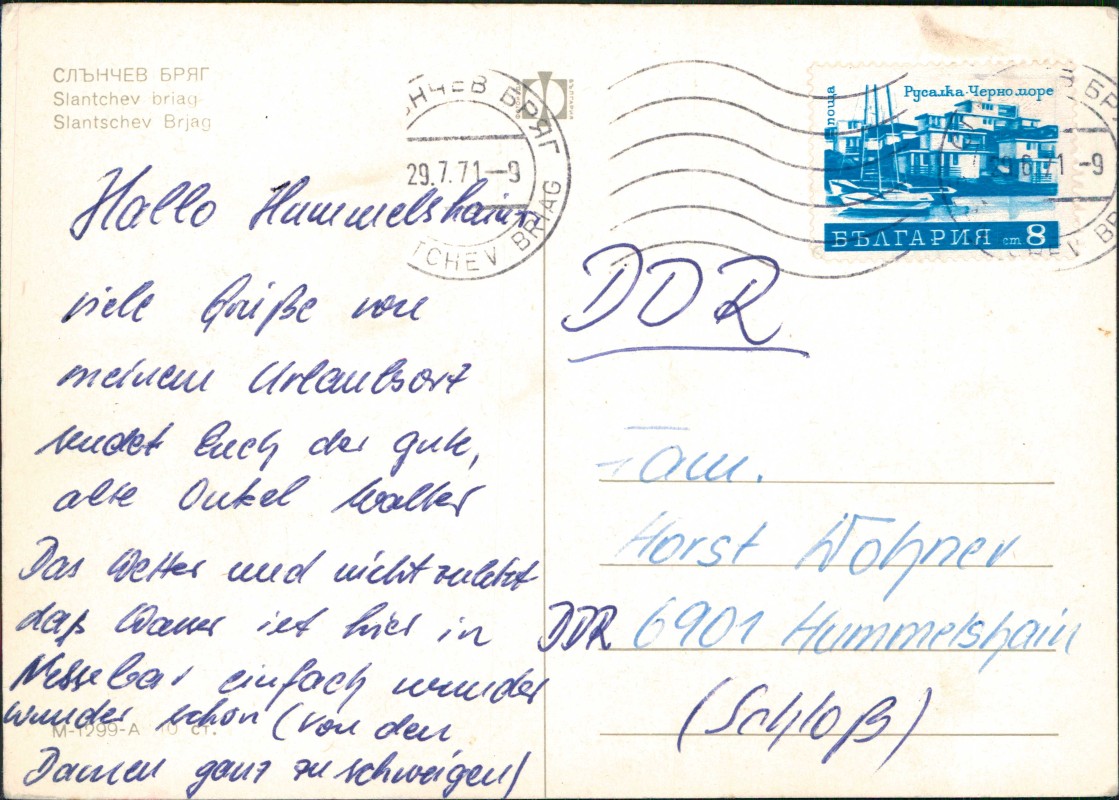 СЛЪНЧЕВ БРЯГ
Slantchev briag
Slantschev Brjag
Hallo Hummelshain
viele Grüße von
meinem Urlaubsort
sendet Euch der gute,
alte Onkel Walter
Das Wetter und nicht zuletzt
daß Wasser ist hier in
Nessebar einfach wunder
wunder schön (von den
Damen ganz zu schweigen)
М-1299-А 10 ст.
НЧЕВ БРЯГ
29.7.71-9
TCHEV BRIAG
БЪЛГАРИЯ
поща
Русалка·Черно море
БЪЛГАРИЯ ст 8
71 -9
DDR
Fam.
Horst Wohner
DDR 6901 Hummelshain
(Schloß)